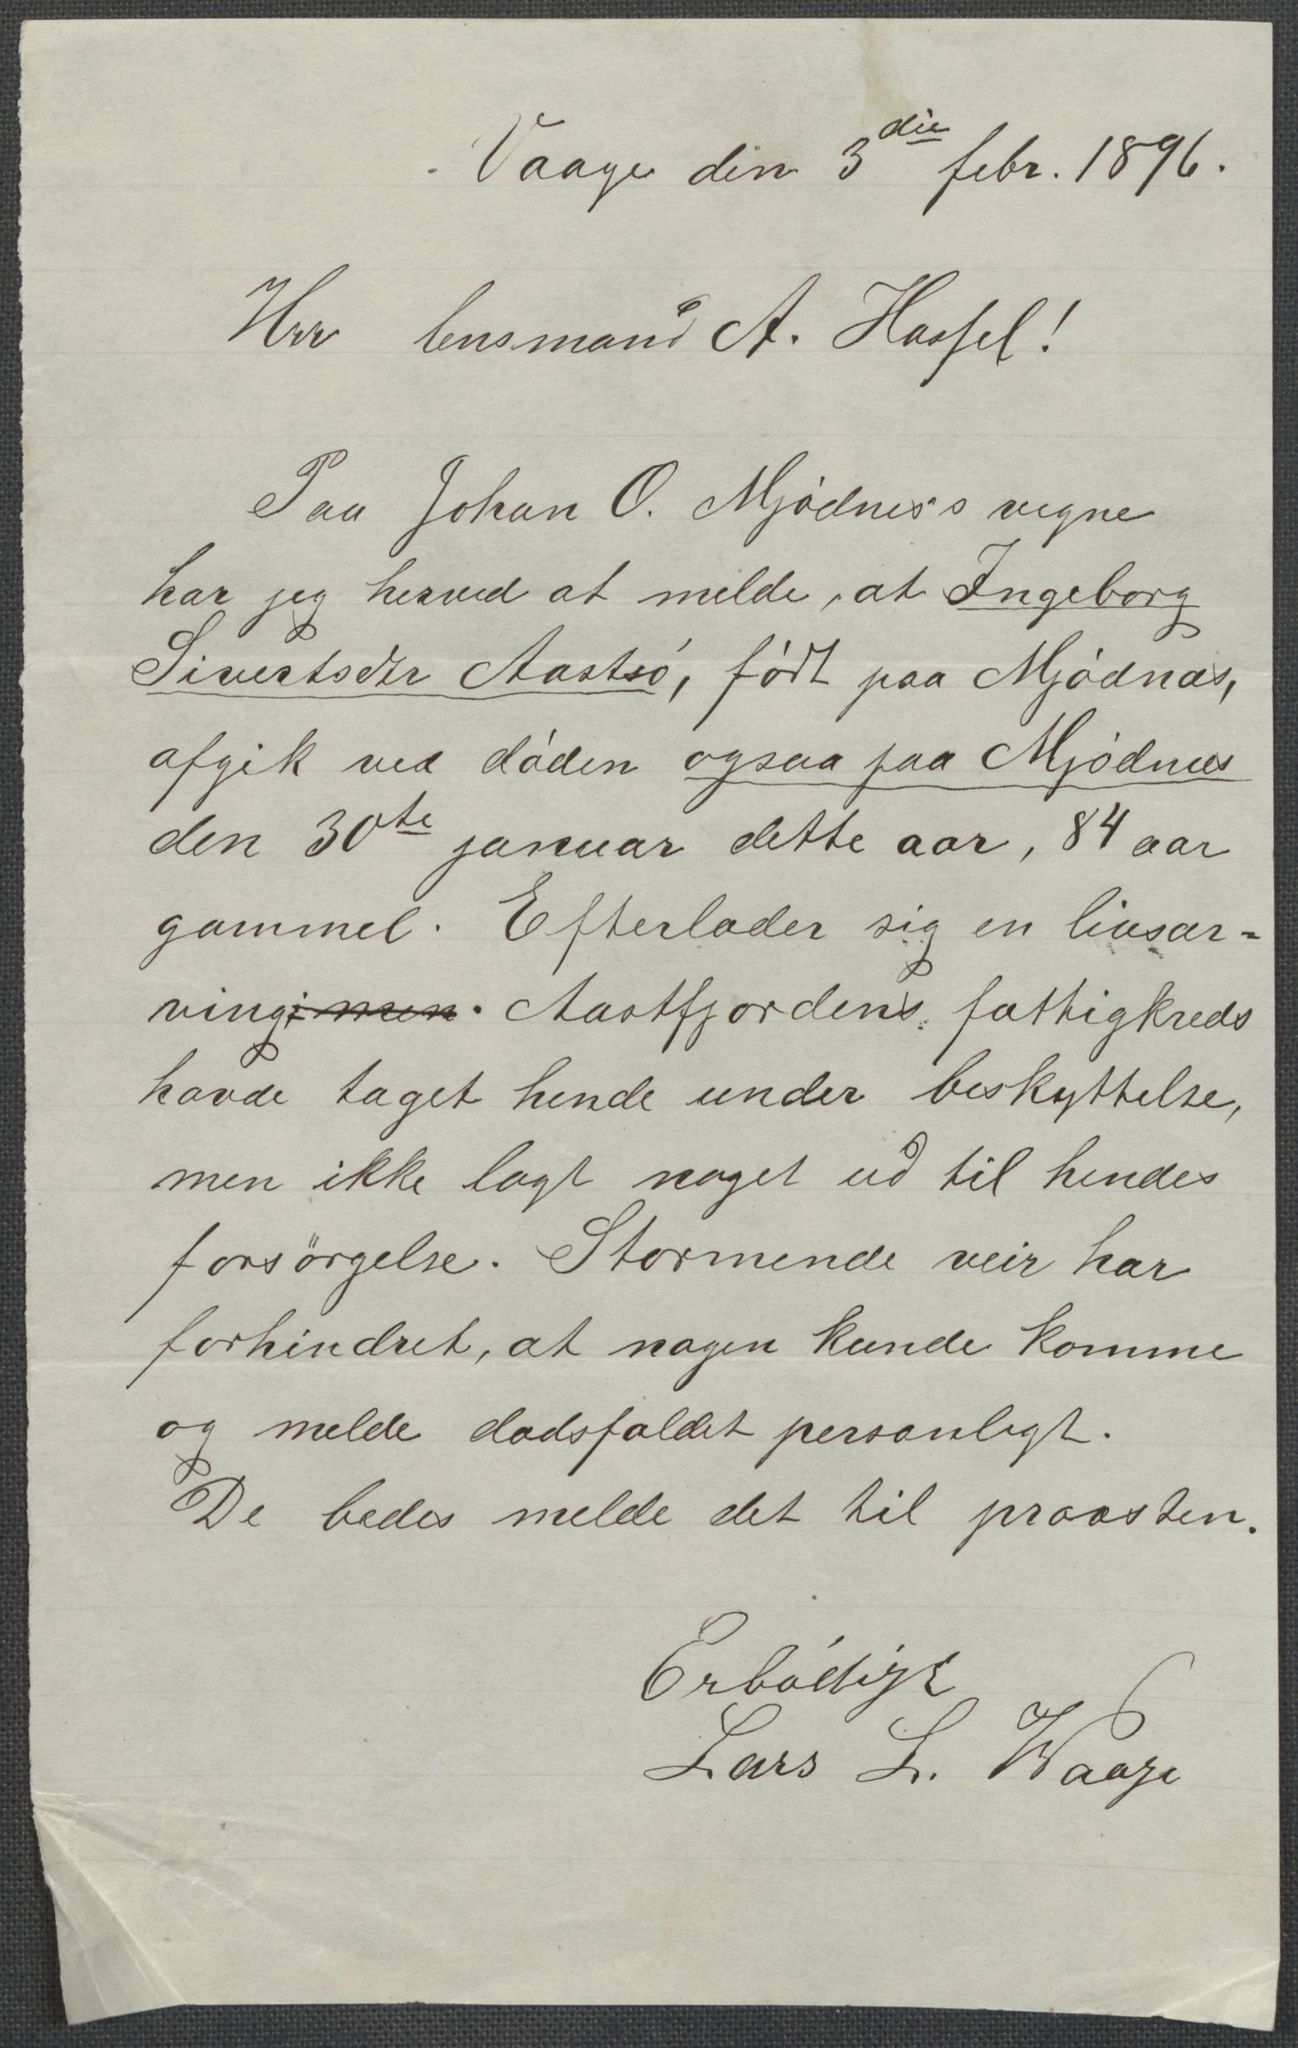 Vaage den 3die febr. 1896.
Hrr lensmand A. Hassel!
Paa Johan O. Mjødnes's vegne
har jeg herved at melde, at Ingeborg
Sivertsdtr Aastsø, født paa Mjødnæs,
afgik ved døden ogsaa paa Mjødnæs
den 30te januar dette aar, 84 aar
gammel. Efterlader sig en livsar-
ving; men. Aastfjordens fattigkreds
havde taget hende under beskyttelse,
men ikke lagt noget ud til hendes
forsörgelse. Stormende veir har
forhindret, at nogen kunde komme
og melde dødsfaldet personligt.
De bedes melde det til proosten.
Erbødigst
Lars L. Waage